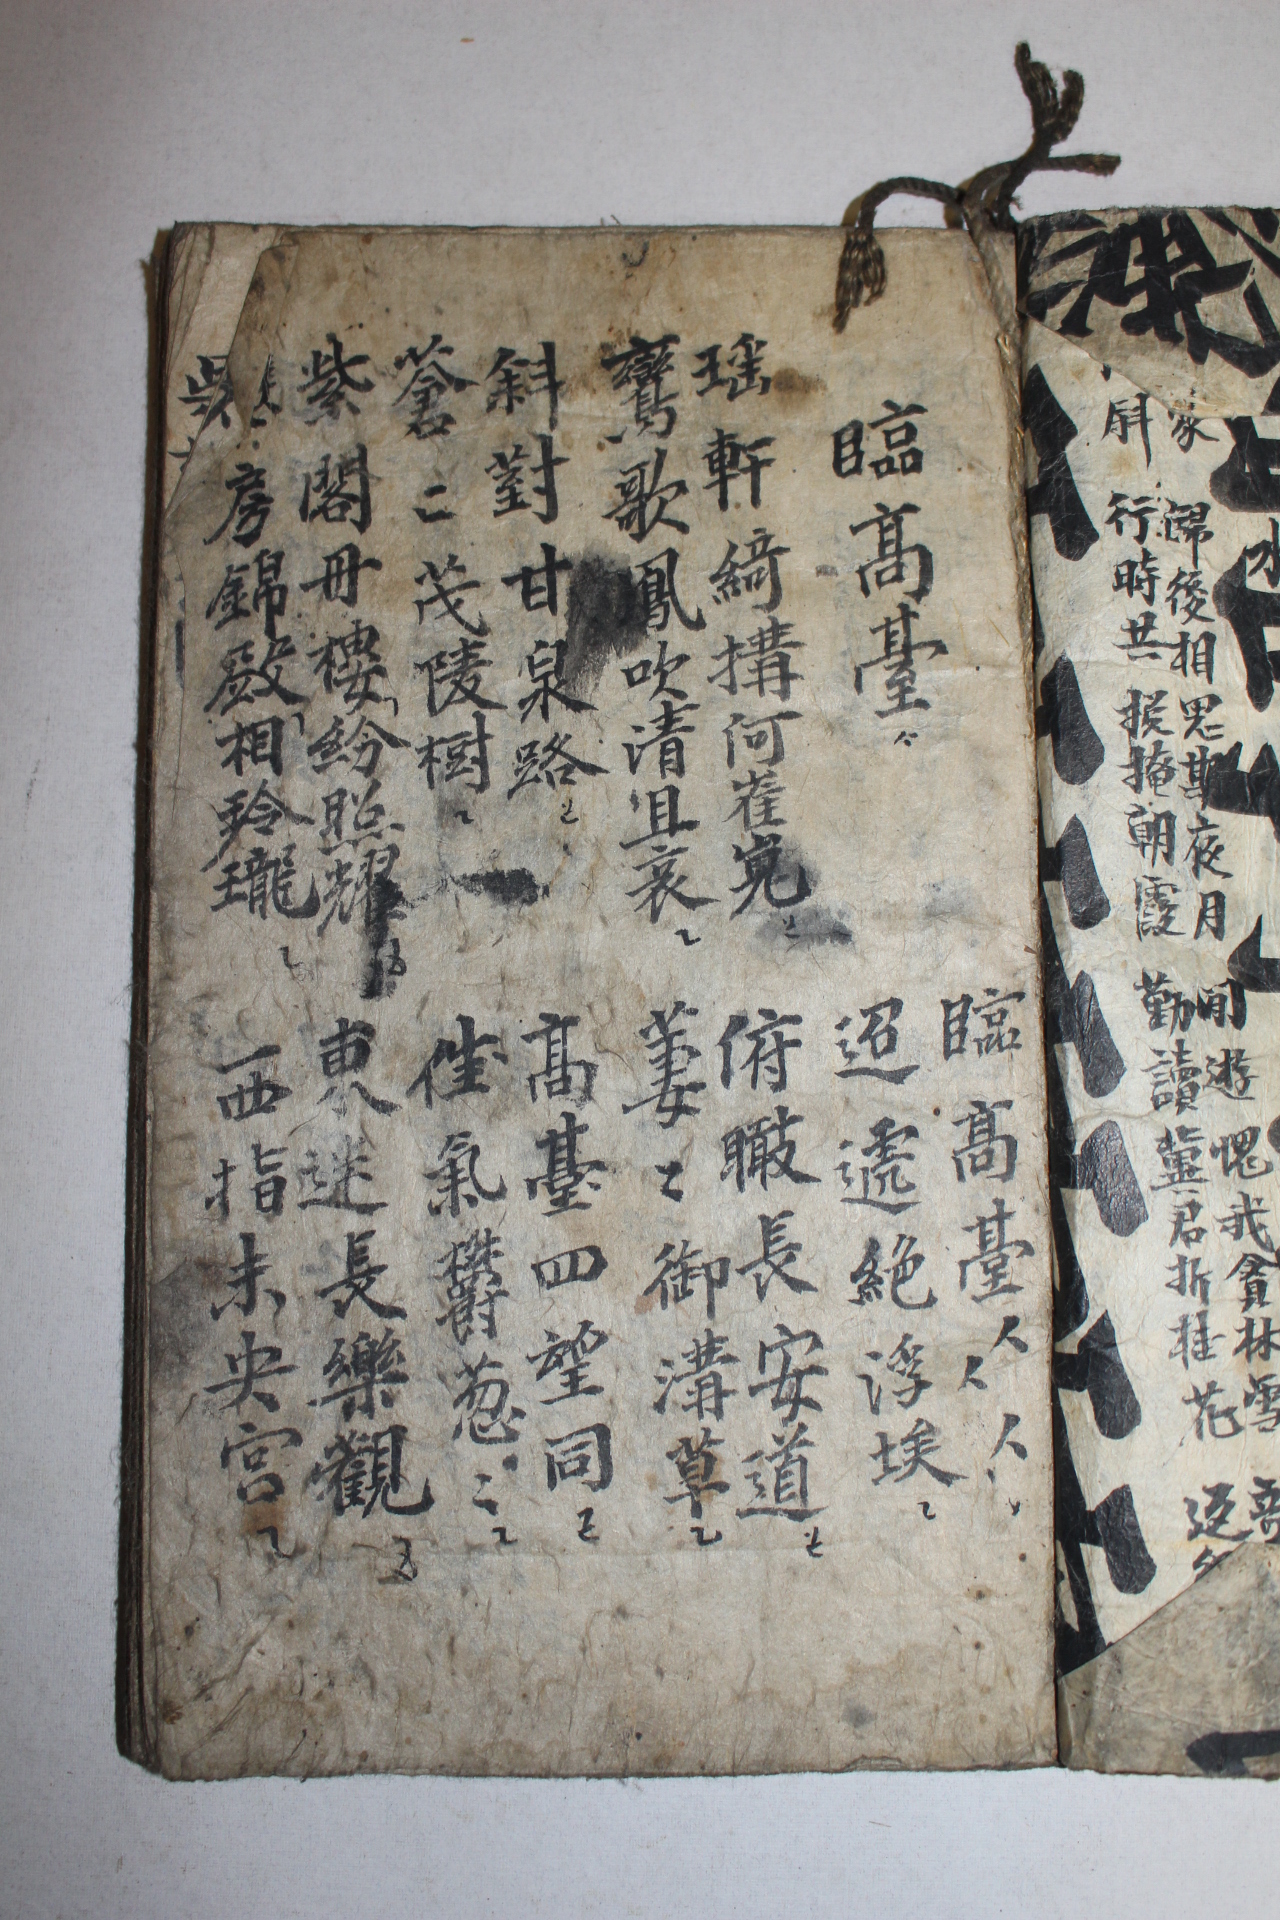 臨高臺
臨高臺
迢遞絶浮埃
瑶軒綺搆何崔嵬
鸞歌鳳吹清且哀
俯瞰長安道
萋〻御溝草
斜對甘泉路
蒼〻茂陵樹
高臺四望同
佳氣欝葱〻
紫閣丹樓紛照耀
房錦殿相玲瓏
東迷長樂觀
西指未央宮
歸後相思斯夜月 閒遊愧我貪林雪
行時共掩朝霞 勤讀冀君折桂花
水